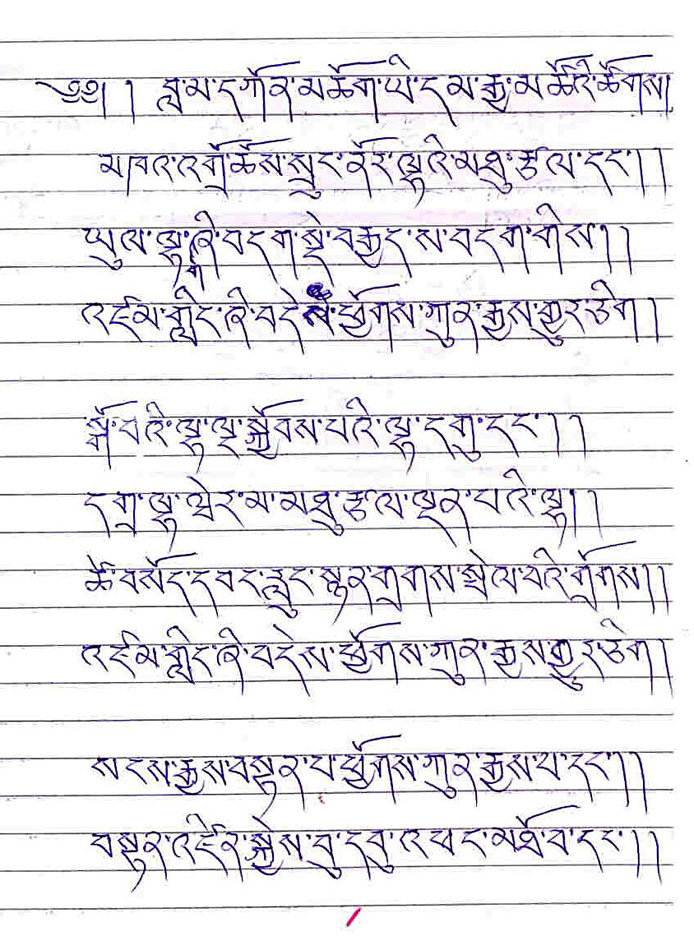 ༄༅། །བླ་མ་དཀོན་མཆོག་ཡི་དམ་རྒྱ་མཚོའི་ཚོགས།
མཁའ་འགྲོ་ཆོས་སྲུང་ནོར་ལྷའི་མཐུ་རྩལ་དང་།།
ཡུལ་ལྷ་གཞི་བདག་སྡེ་བརྒྱད་ས་བདག་གིས།།
འཛམ་གླིང་ཞི་བདེས་ཕྱོགས་ཀུན་རྒྱས་གྱུར་ཅིག།
སྒོ་བའི་ལྷ་ལྔ་སྐྱོབས་པའི་ལྷ་དགུ་དང་།།
དགྲ་ལྷ་ཝེར་མ་མཐུ་རྩལ་ལྡན་པའི་ལྷ།།
ཚེ་བསོད་དབང་རླུང་སྙན་གྲགས་སྤེལ་བའི་གྲོགས།།
འཛམ་གླིང་ཞི་བདེས་ཕྱོགས་ཀུན་རྒྱས་གྱུར་ཅིག།
སངས་རྒྱས་བསྟན་པ་ཕྱོགས་ཀུན་རྒྱས་པ་དང་།།
བསྟན་འཛིན་སྐྱེས་བུ་དབུ་འཕང་མཐོ་བ་དང་།།